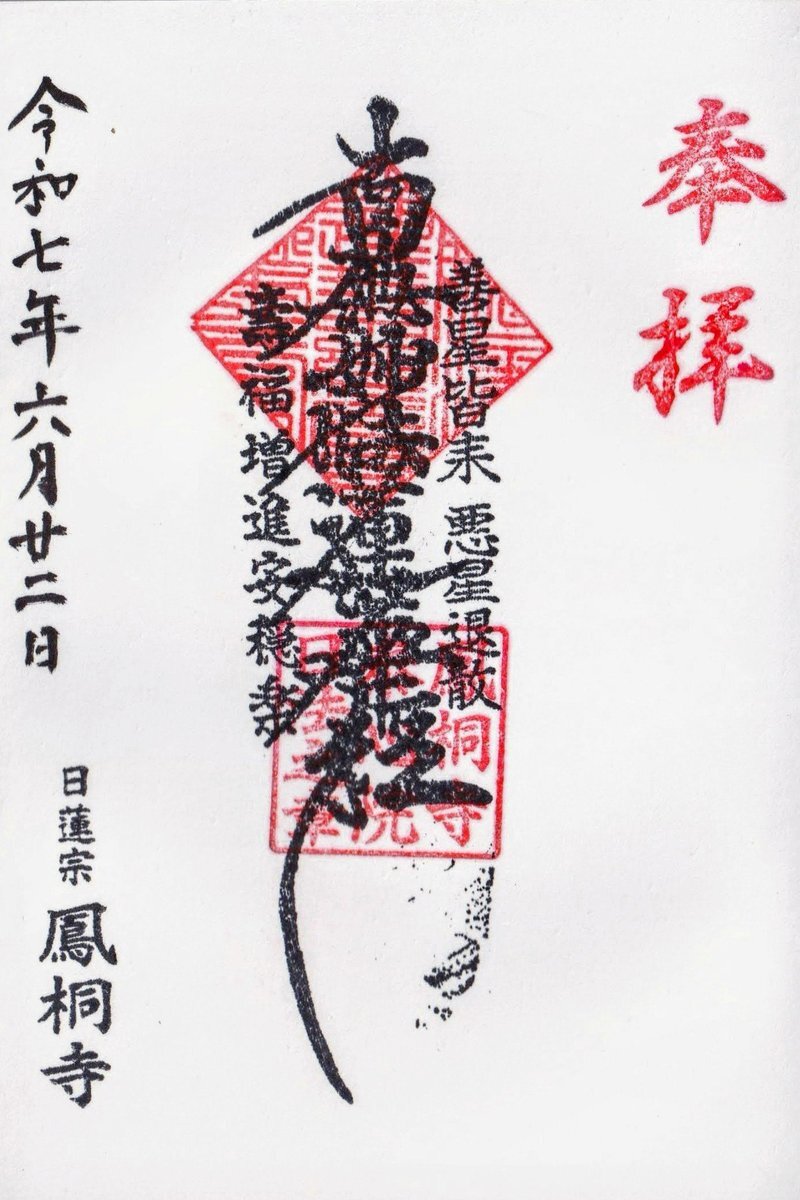 奉拝
善星皆来 悪星退散
南無妙法蓮華経
寿福増進安穏楽
鳳桐寺
令和七年六月廿二日
日蓮宗 鳳桐寺